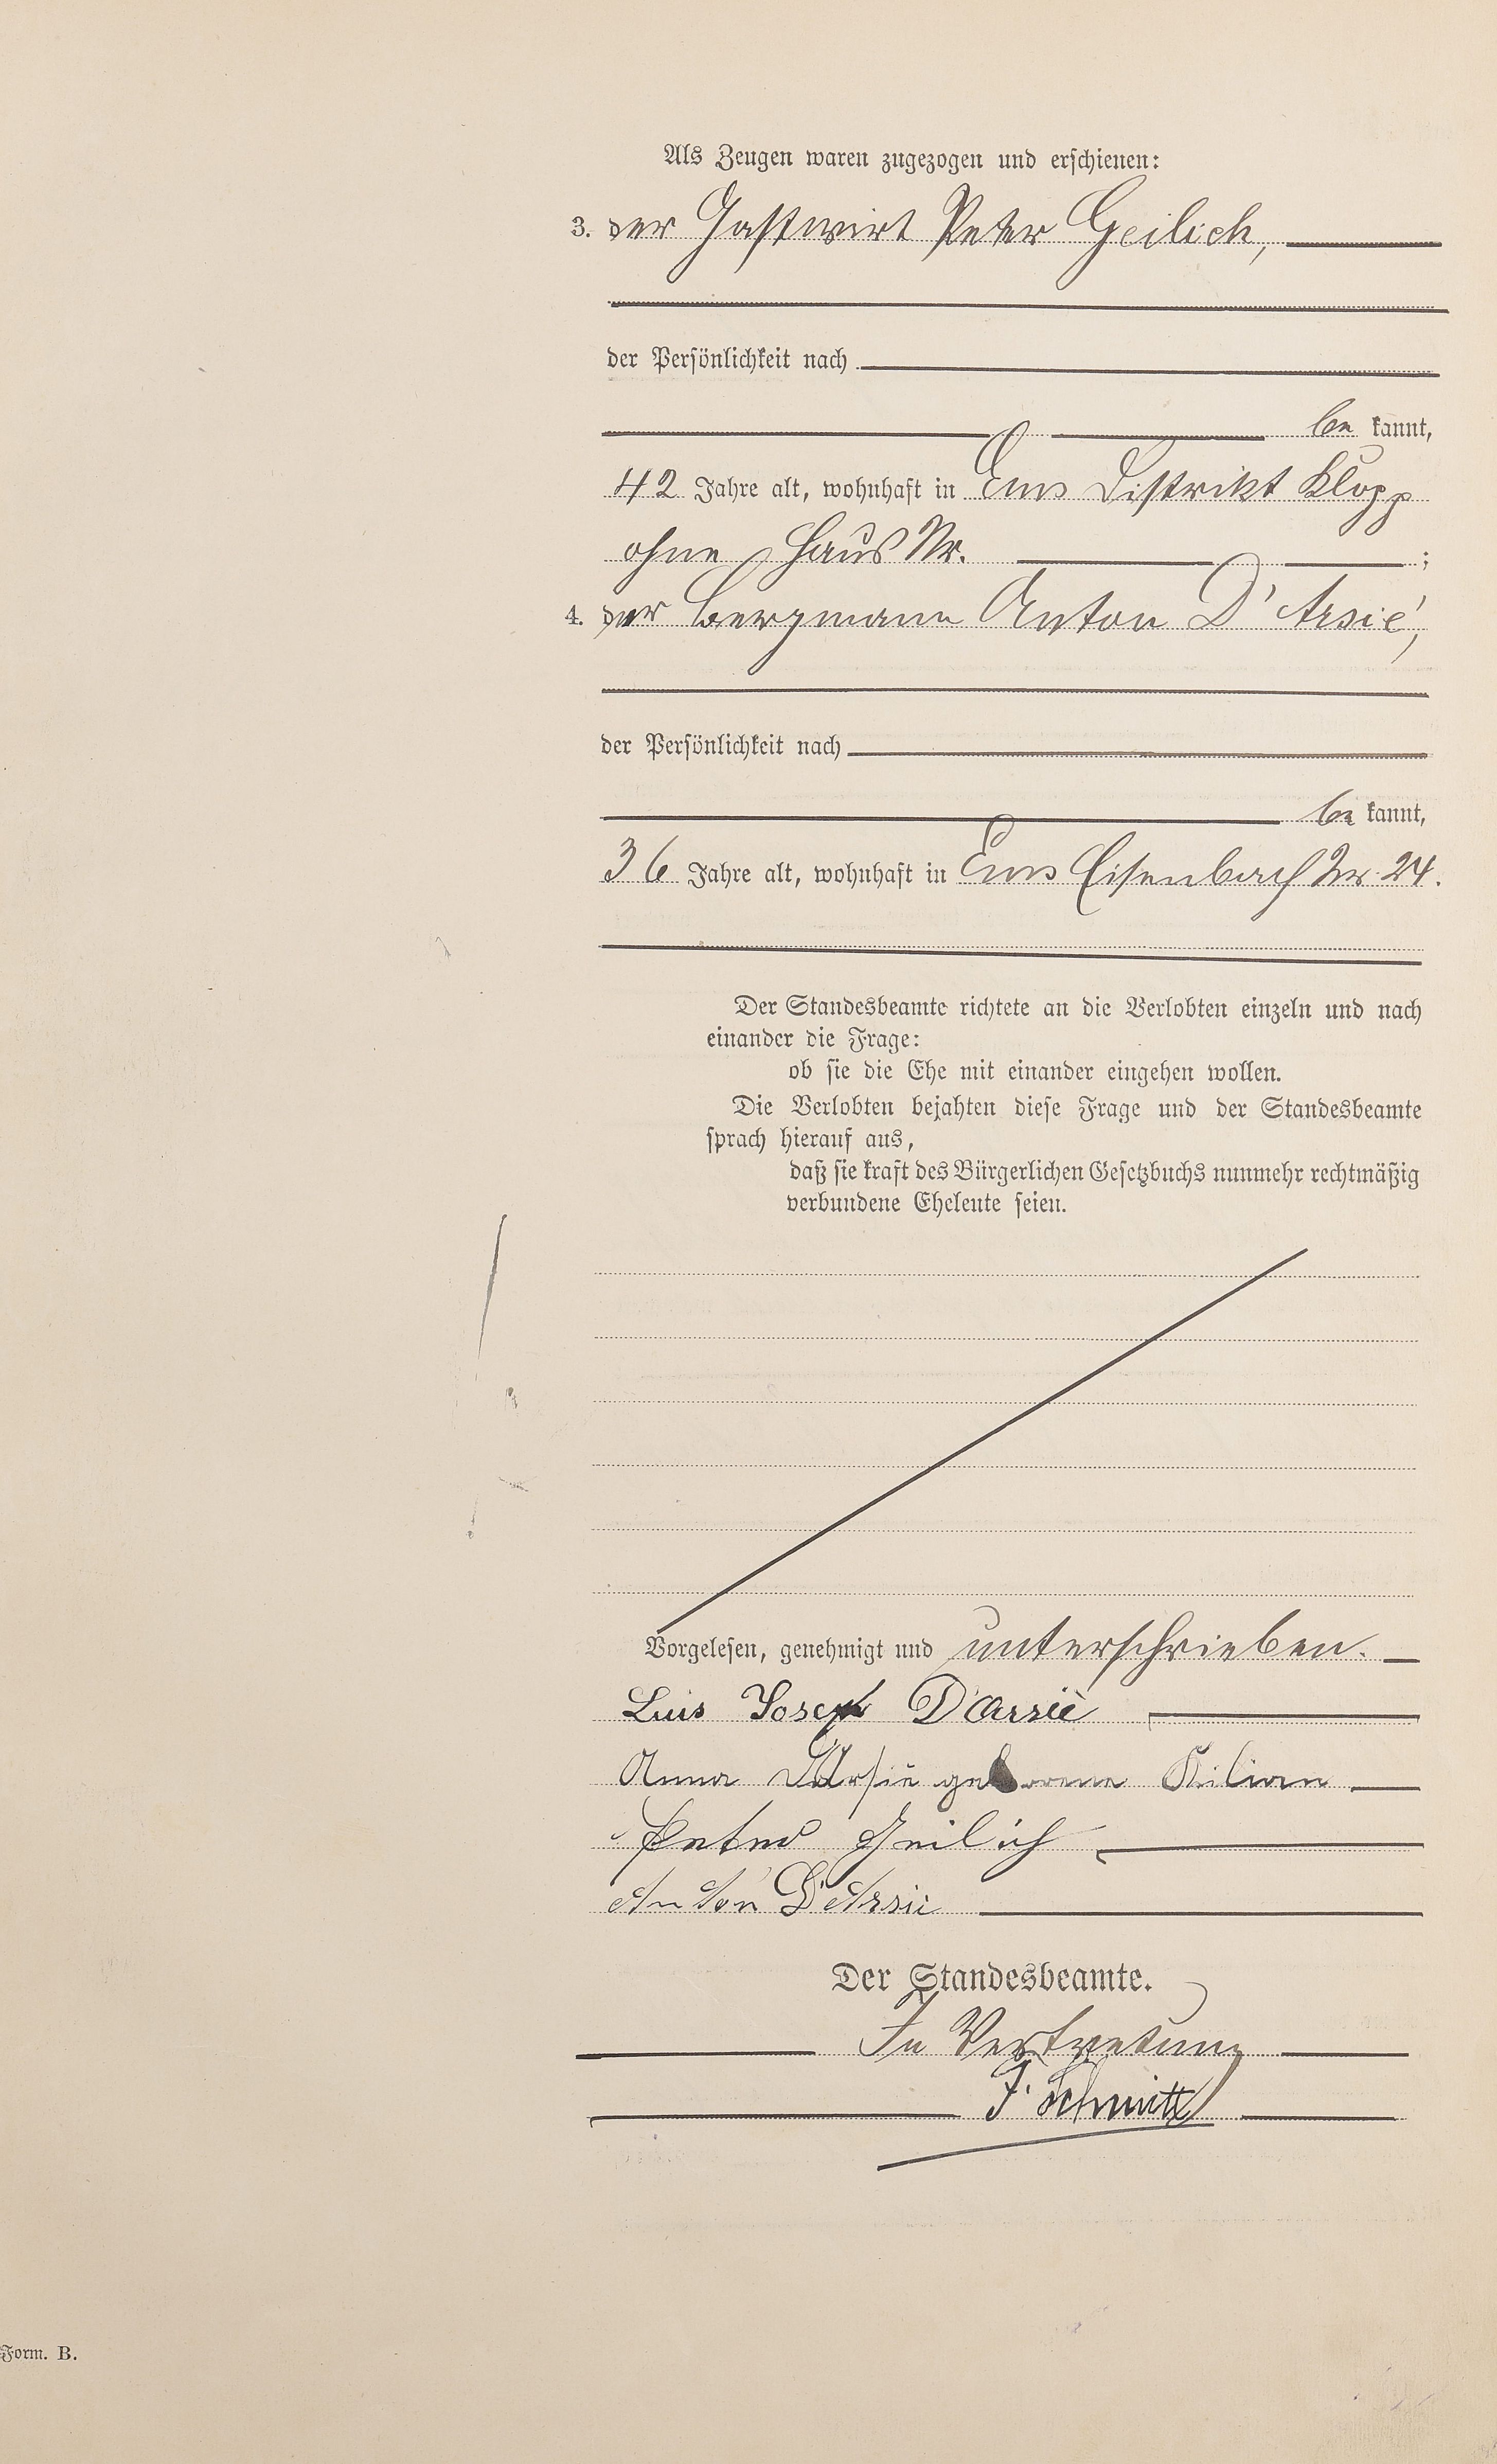 Als Zeugen waren zugezogen und erschienen:
3. der Gastwirt Peter Geilich,
der Persönlichkeit nach
be kannt,
42 Jahre alt, wohnhaft in Ems Distrikt Klopp
ohne Haus Nr. ;
4. der Bergmann Anton D'Arsié,
der Persönlichkeit nach
be kannt,
36 Jahre alt, wohnhaft in Ems Eisenbach Nr. 24.
Der Standesbeamte richtete an die Verlobten einzeln und nach
einander die Frage:
ob sie die Ehe mit einander eingehen wollen.
Die Verlobten bejahten diese Frage und der Standesbeamte
sprach hierauf aus,
daß sie kraft des Bürgerlichen Gesetzbuchs nunmehr rechtmäßig
verbundene Eheleute seien.
Vorgelesen, genehmigt und unterschrieben.
Luis Joseph D'Arsié
Anna D'Arsié geborene Kilian
Peter Geilich
Anton D'Arsie
Der Standesbeamte.
In Vertretung
J. Schmitt
Form. B.